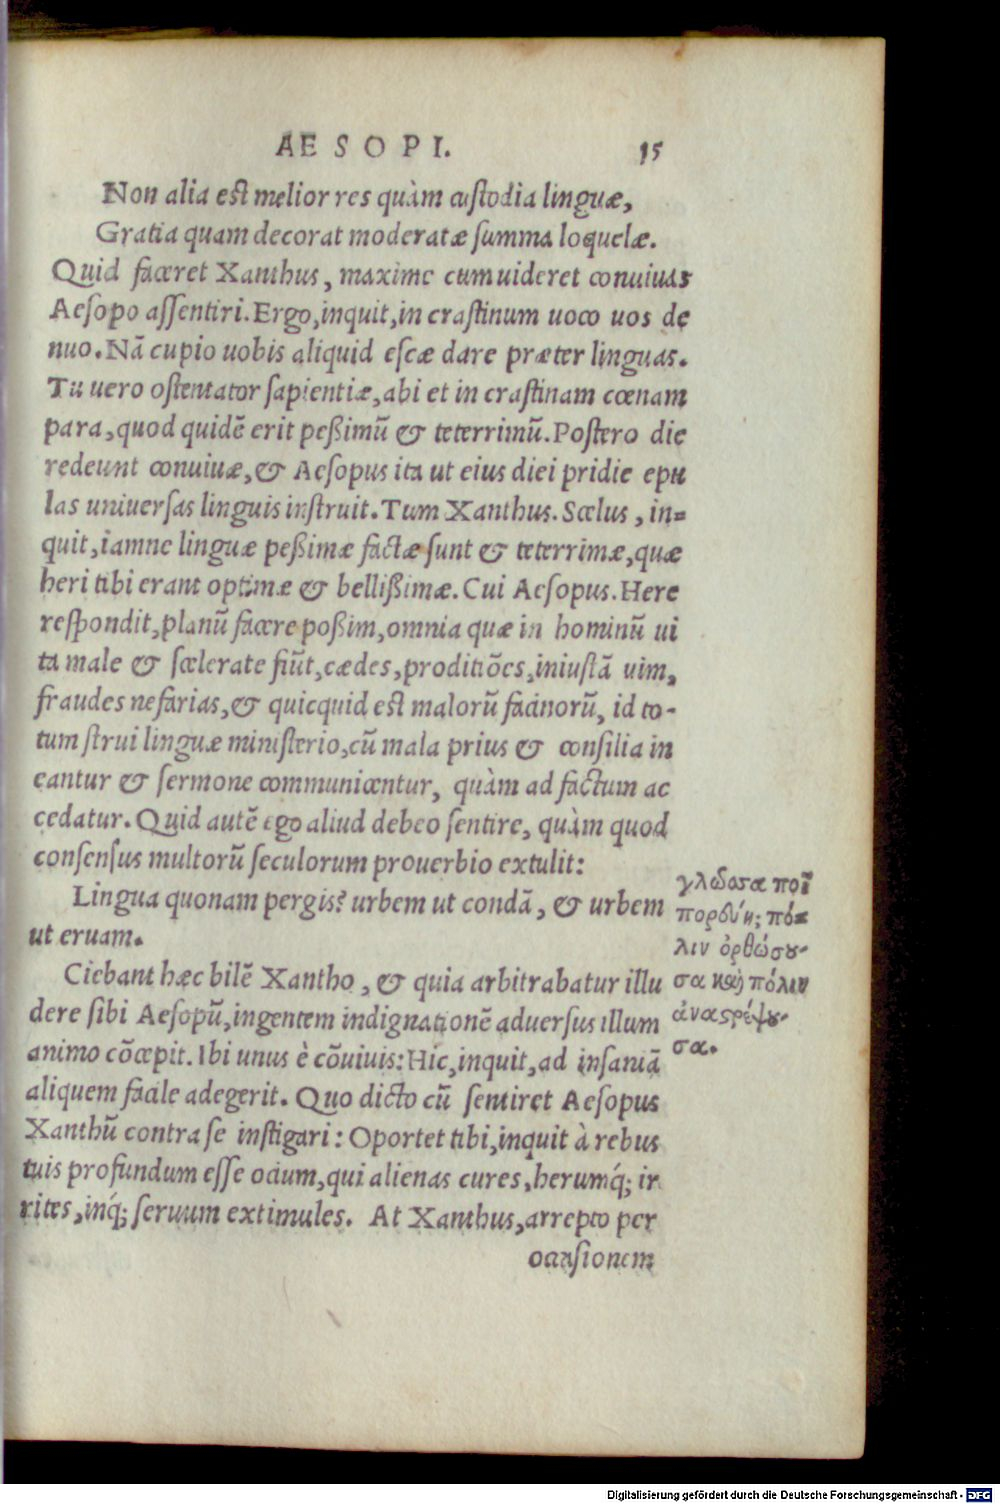 AESOPI. 15
Non alia est melior res quàm custodia linguæ,
Gratia quam decorat moderatæ summa loquelæ.
Quid faceret Xanthus, maxime cum uideret conuiuas
Aesopo assentiri. Ergo, inquit, in crastinum uoco uos de
nuo. Nā cupio uobis aliquid escæ dare præter linguas.
Tu uero ostentator sapientiæ, abi et in crastinam cœnam
para, quod quidē erit peßimū & teterrimū. Postero die
redeunt conuiuæ, & Aesopus ita ut eius diei pridie epu
las uniuersas linguis instruit. Tum Xanthus. Scelus, in=
quit, iamne linguæ peßimæ factæ sunt & teterrimæ, quæ
heri tibi erant optimæ & bellißimæ. Cui Aesopus. Here
respondit, planū facere poßim, omnia quæ in hominū ui
ta male & scelerate fiūt, cædes, proditiōes, iniustā uim,
fraudes nefarias, & quicquid est malorū facinorū, id to-
tum strui linguæ ministerio, cū mala prius & consilia in
eantur & sermone communicentur, quàm ad factum ac
cedatur. Quid autē ego aliud debeo sentire, quàm quod
consensus multorū seculorum prouerbio extulit:
Lingua quonam pergis? urbem ut condā, & urbem
ut eruam.
Ciebant hæc bilē Xantho, & quia arbitrabatur illu
dere sibi Aesopū, ingentem indignationē aduersus illum
animo cōcepit. Ibi unus è cōuiuis: Hic, inquit, ad insaniā
aliquem facile adegerit. Quo dicto cū sentiret Aesopus
Xanthū contra se instigari: Oportet tibi, inquit à rebus
tuis profundum esse ocium, qui alienas cures, herumq́; ir
rites, inq́; seruum extimules. At Xanthus, arrepto per
occasionem
γλῶσσα ποῖ
πορεύῃ; πό=
λιν ὀρθώσου-
σα καὶ πόλιν
ἀναστρέψου-
σα.
Digitalisierung gefördert durch die Deutsche Forschungsgemeinschaft - DFG